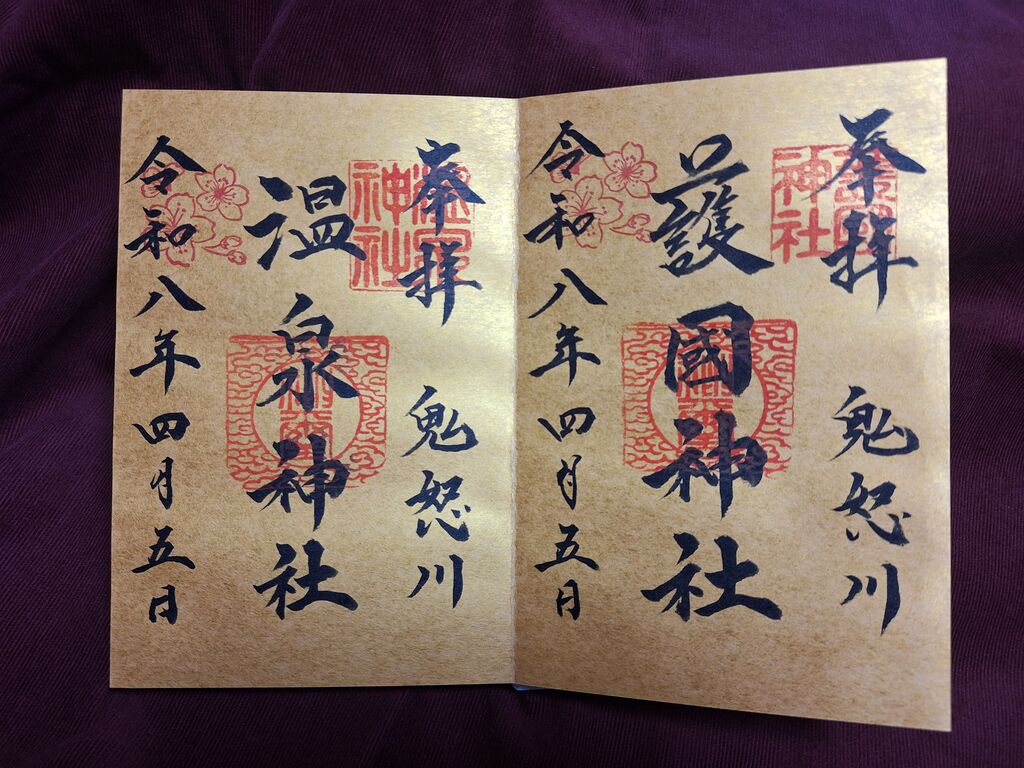 奉拝 鬼怒川
神社
護國神社
令和八年四月五日
奉拝 鬼怒川
神社
温泉神社
令和八年四月五日